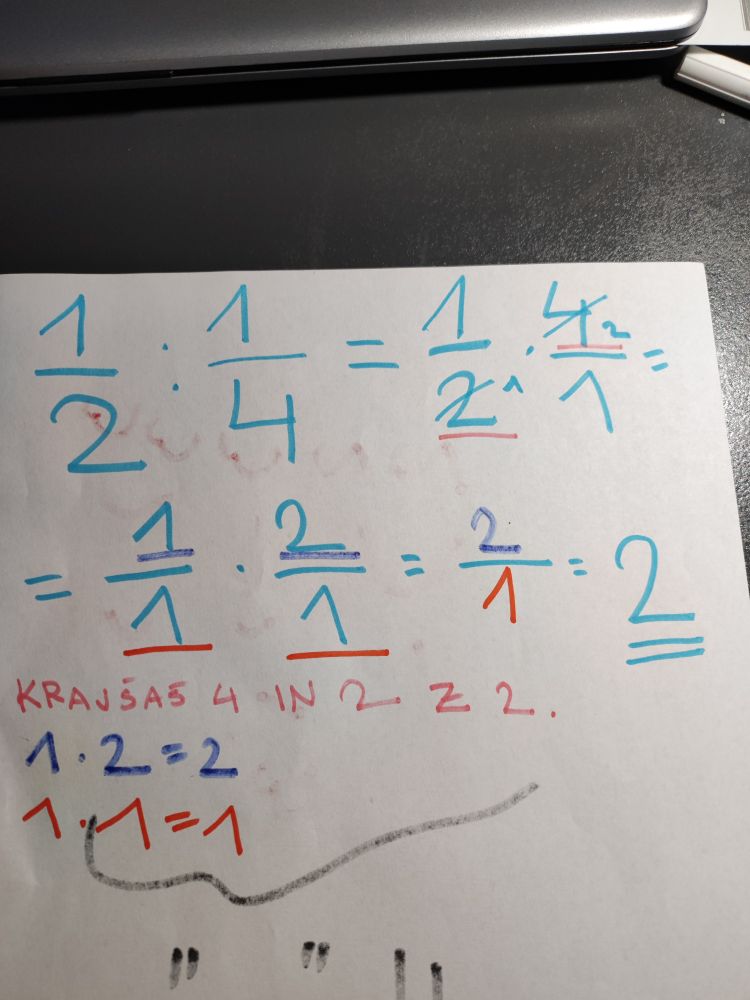 1/2 : 1/4 = 1/2 1 · 4 2/1 =
= 1/1 · 2/1 = 2/1 = 2
KRAJŠAŠ 4 IN 2 Z 2.
1 · 2 = 2
1 · 1 = 1
" " ||